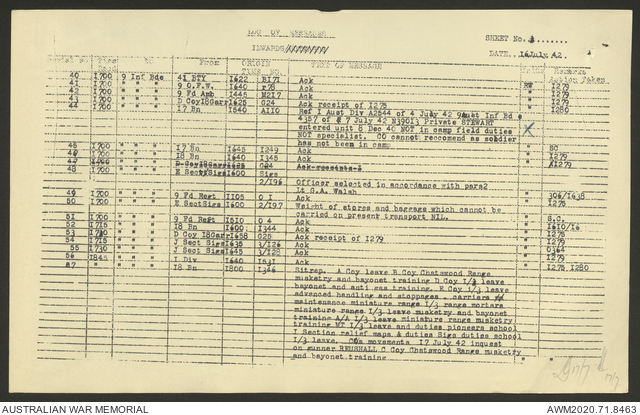 LOG OF MESSAGES
INWARDS/
SHEET No. 1.......
DATE. 16 July 42.
From ORIGIN TEXT OF MESSAGE Remarks
TIME NO. Action Taken
40 1700 9 Inf Bde 41 BTY 1622 BI71 Ack I279
41 1700 " " " 9 O.F.W. 1640 r78 Ack " I279
42 1700 " " " 9 Fd Amb 1445 M217 Ack " I279
1700 " " " D Coy I8Garr 1625 G24 Ack receipt of I275 " I286
44 1700 " " " 17 Bn 1640 AI10 Ref 1 Aust Div A2544 of 4 July 42 9 Aust Inf Bd
4357 of 7 July 42 N39013 Private STEWART
entered unit 8 Dec 40 NOT in camp field duties
NOT specialist. CO cannot reccomend as soldier
has not been in camp
45 1700 " " " 17 Bn 1645 I249 Ack " SC
1700 " " " I8 Bn 1640 I345 Ack " I279
D Coy I8Garr 1625 G24 Ack receipts " I279
48 1700 " " " E Sect Sigs 1600 Sigs
2/196 Officer selected in accordance with para2
Lt G.A. Walsh
49 1700 " " " 9 Fd Regt 1105 O I Ack " 306/1638
50 1700 " " " E SectSigs 1600 2/197 Weight of stores and baggage which cannot be " I275
carried on present transport NIL.
51 1700 " " " 9 Fd Regt 1510 O 4 Ack " S.C.
52 1715 " " " I8 Bn 1600 I344 Ack " 1610/16
53 1710 " " " D Coy I8Garr 1658 G25 Ack receipt of I279 " I275
54 1715 " " " J Sect Sigs 1635 3/126 Ack " I279
55 1730 " " " J Sect Sigs 1645 3/128 Ack " 0364
56 1845 " " " I Div 1640 I531 Ack " I279
57 " " " " I8 Bn 1800 I346 Sitrep. A Coy leave B Coy Chatswood Range " I275 I280
musketry and bayonet training D Coy I/3 leave
bayonet and anti gas training. E Coy I/3 leave
advanced handling and stoppages . carriers
maintenance miniature range I/3 range mortars
miniature range I/3 leave musketry and bayonet
training A/A I/3 leave miniature range musketry
training MT I/3 leave and duties pioneers school
I Section relief maps & duties Sigs duties school
I/3 leave. COs movements 17 July 42 inquest
on gunner C Coy Chatswood Range musketry
and bayonet training
AUSTRALIAN WAR MEMORIAL
AWM2020.71.8463